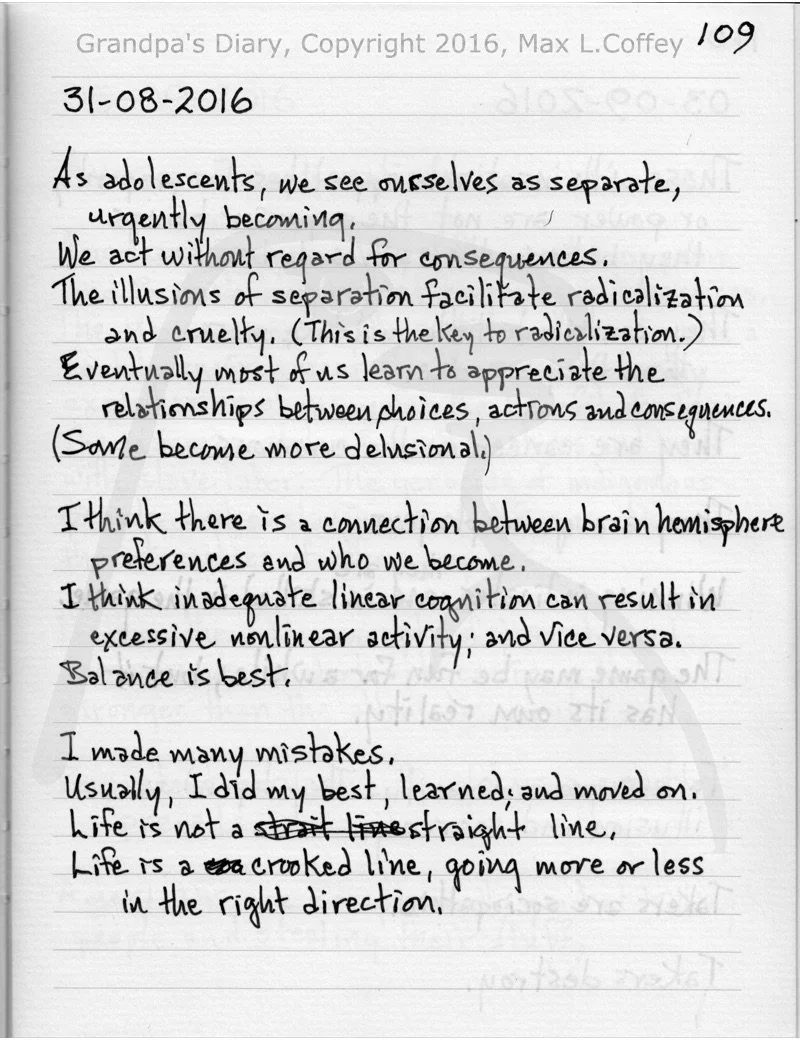 Grandpa's Diary, Copyright 2016, Max L.Coffey
109
31-08-2016
As adolescents, we see ourselves as separate,
urgently becoming.
We act without regard for consequences.
The illusions of separation facilitate radicalization
and cruelty. (This is the key to radicalization.)
Eventually most of us learn to appreciate the
relationships between choices, actions and consequences.
(Some become more delusional.)
I think there is a connection between brain hemisphere
preferences and who we become.
I think inadequate linear cognition can result in
excessive nonlinear activity; and vice versa.
Balance is best.
I made many mistakes.
Usually, I did my best, learned; and moved on.
Life is not a strait line straight line.
Life is a crooked line, going more or less
in the right direction.